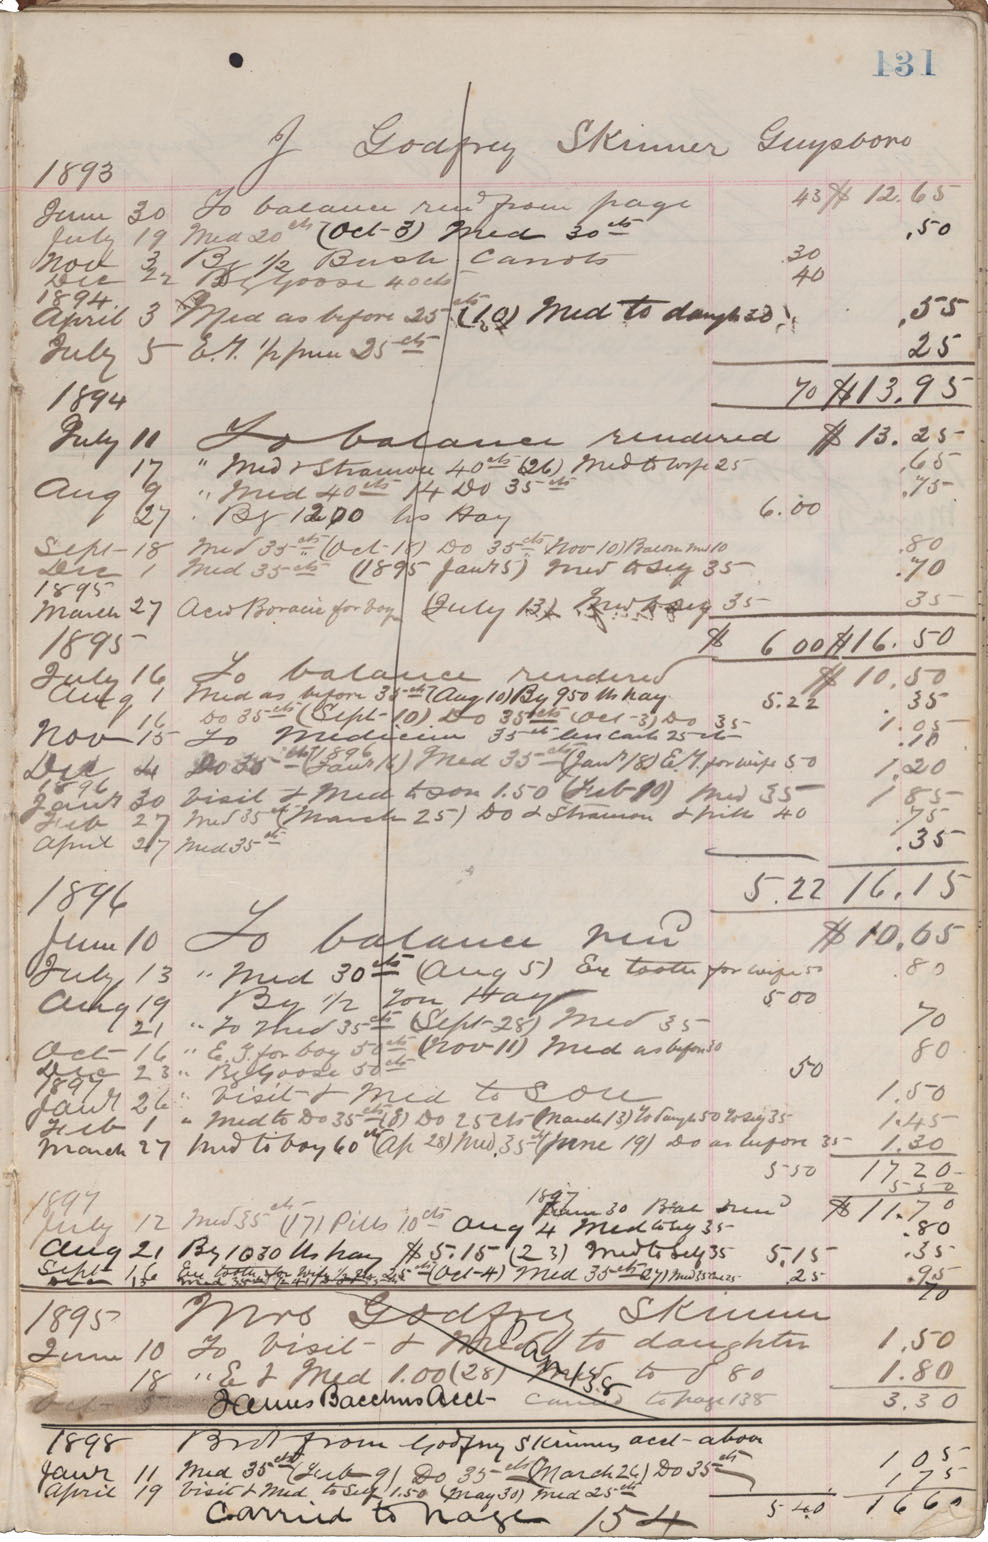 131
J Godfrey Skinner Guysboro
1893
June 30 To balance ren'd from page 43 $ 12.65
July 19 Med 20 cts (Oct 3) Med 30 cts .50
Nov 3 By 1/2 Bush Carrots 30
Dec 22 By Goose 40 cts 40
1894
April 3 Med as before 25 cts (10) Med to daugh 30 .55
July 5 E.T. 25 cts 25
70 $13.95
1894
July 11 To balance rendered $ 13.25
17 " Med & Stramon 40 cts (26) Med to wife 25 .65
Aug 9 " Med 40 cts 14 Do 35 cts .75
27 By 1200 lbs Hay 6.00
Sept 18 Med 35 cts (Oct 18) Do 35 cts (Nov 10) 10 .80
Dec 1 Med 35 cts (1895 Janr 5) Med to self 35 .70
1895
March 27 Acid Boracic for boy (July 13) Med to self 35 35
$ 6 00 $16.50
1895
July 16 To balance rendered $ 10.50
Aug 1 Med as before 35 cts (Aug 10) By 950 lbs hay 5.22 .35
16 Do 35 cts (Sept 10) Do 35 cts (Oct 3) Do 35 1.05
Nov 15 To Medicine 35 cts less Cash 25 cts .10
Dec 4 Do 35 cts (1896 Janr 14) Med 35 cts (Janr 18) E.T. for wife 50 1.20
1896
Janr 30 Visit & Med to son 1.50 (Feb 10) Med 35 1.85
Feb 27 Med 35 cts (March 25) Do & Stramon & pills 40 .75
April 27 Med 35 cts .35
5.22 16.15
1896
June 10 To balance ren'd $ 10.65
July 13 " Med 30 cts (Aug 5) Ex tooth for wife 50 .80
Aug 19 By 1/2 Ton Hay 5 00
21 " To Med 35 cts (Sept 28) Med 35 70
Oct 16 " E.T. for boy 50 cts (Nov 11) Med as before 30 80
Dec 23 " By Goose 50 cts 50
1897
Janr 26 " Visit & Med to Son 1.50
Feb 1 " Med to Do 35 cts (8) Do 25 cts (March 13) To daugh 50 To self 35 1.45
March 27 Med to boy 60 cts (Ap 28) Med 35 cts (June 19) Do as before 35 1.30
5 50 17.20
5 50
1897 1897 June 30 Bal ren'd $ 11.70
July 12 Med 35 cts (17) Pills 10 cts Aug 4 Med to self 35 .80
Aug 21 By 1030 lbs hay $ 5.15 (23) Med to self 35 5.15 .35
Sept 16 25 cts (Oct 4) Med 35 cts .25 .95
70
1895 Mrs Godfrey Skinner
June 10 To Visit & Med to daughter 1.50
18 " E & Med 1.00 (28) Med to J 80 1.80
James Bacchus Acct carried to page 138 3.30
138
1898 Brot from Godfrey Skinners acct above 1 05
Janr 11 Med 35 cts (Feb 9) Do 35 cts (March 26) Do 35 cts
April 19 Visit & Med to Self 1.50 (May 30) Med 25 cts 1 75
5 40 16 60
Carried to Page 154